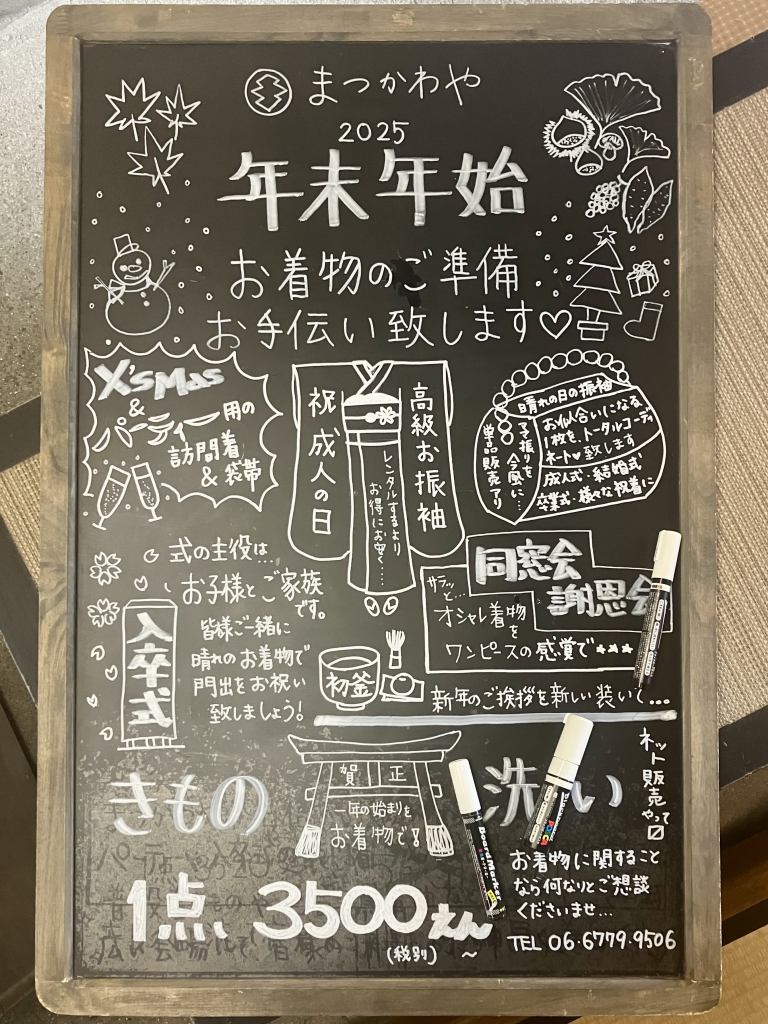 まつかわや
2025
年末年始
お着物のご準備
お手伝い致します♡
X'sMas
&
パーティー用の
訪問着
&袋帯
祝成人の日
高級お振袖
レンタルするより
お得にお安く……
晴れの日の振袖
お似合いになる
1枚を、トータルコーディ
ネート♥致します
成人式・結婚式
卒業式・様々な祝着に
ママ振りを
今風に…
単品販売アリ
式の主役は…
お子様とご家族
です。
皆様ご一緒に
晴れのお着物で
門出をお祝い
致しましょう!
入卒式
同窓会
謝恩会
サラッ
と…
オシャレ着物
を
ワンピースの感覚で★★★
初釜
新年のご挨拶を新しい装いで…
賀正
一年の始まりを
お着物で!
きもの 洗い
ネット販売やって〼
1点、3500えん
(税別) ~
お着物に関すること
なら何なりとご相談
くださいませ…
TEL 06.6779.9506